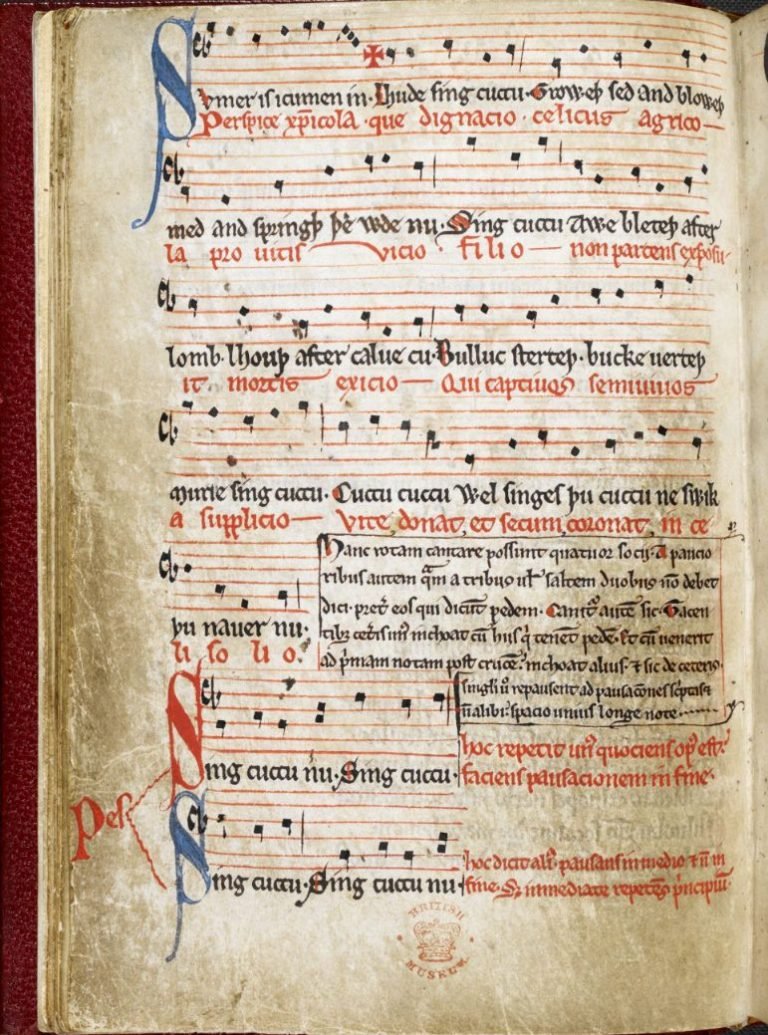 Sumer is icumen in· Lhude sing cuccu· Groweþ sed and bloweþ
Perspice xp̄icola· que dignacio· celicus agrico
med and springþ þe wde nu· Sing cuccu Awe bleteþ after
la pro uitis vicio· filio non parcens exposu
lomb· lhouþ after calue cu· Bulluc sterteþ· bucke uerteþ
it mortis exicio Qui captiuos semiuiuos
murie sing cuccu· Cuccu cuccu Wel singes þu cuccu ne swik
a supplicio Vite donat, et secum coronat, in ce
þu nauer nu·
li so li o·
Hanc rotam cantare possunt quatuor socij· A paucio
ribus autem qͣm a tribus ul̕ saltem duobus nō debet
dici· pret̕ eos qui dicūt pedem· Canit᷑ autē sic· Tacen
tibꝫ cet̕is unꝰ inchoat cū hijs qͥ tenēt pedē· Et cū uenerit
ad pͥmam notam post crucē· inchoat alius· ⁊ sic de ceteris·
singli ū repausent ad pausacōnes scͥptas ⁊
ñ alibi· spacio unius longe note
Sing cuccu nu· Sing cuccu·
hoc repetit unꝰ quociens opꝰ est·
faciens pausacionem in fine·
Pes
Sing cuccu· Sing cuccu nu·
hoc dicit aliꝰ· pausans in medio ⁊ ñ in
fine· Sꝫ immediate repetēs pͥncipiū·
BRITISH
MUSEUM